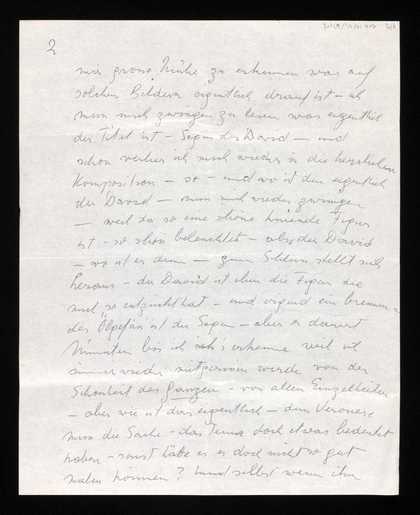 2
mir grosse Mühe zu erkennen was auf
solchen Bildern eigentlich drauf ist – ich
muss mich zwingen zu lesen was eigentlich
der Titel ist – Segen des David – und
schon verlier ich mich wieder in die herrlichen
Komposition – so – und wo ist denn eigentlich
der David – muss mich wieder zwingen
– weil da so eine schöne kniende Figur
ist – so schön beleuchtet – also der David
– wo ist er denn – zum stellt sich
heraus – der David ist eben die Figur die
mich so entzückt hat – und irgend ein
der ist der Segen – aber es dauert
Minuten bis ich ich's erkenne weil ich
immer wieder mitgerissen werde von der
Schönheit des ganzen – von allen Einzelheiten
– aber wie ist das eigentlich – dem Veronese
muss die Sache – das Tema doch etwas bedeutet
haben – sonst hätte er es doch nicht so gut
malen können? Und selbst wenn ihm